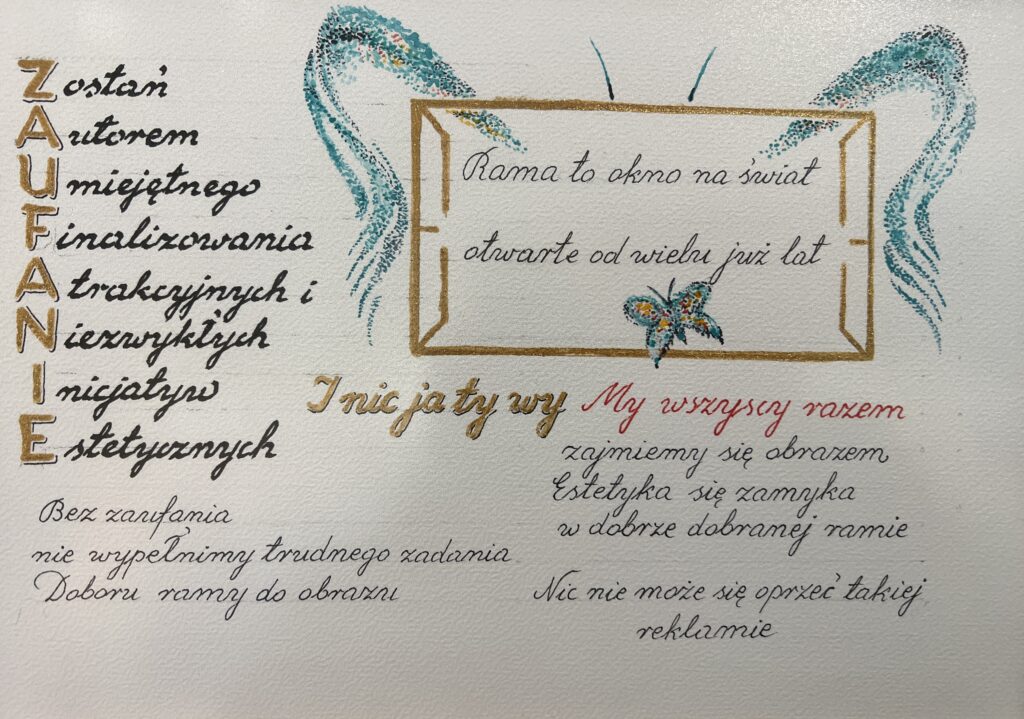 Zostań
Autorem
Umiejętnego
Finalizowania
Atrakcyjnych i
Niezwykłych
Inicjatyw
Estetycznych
Rama to okno na świat
otwarte od wielu już lat
Inicjatywy My wszyscy razem
zajmiemy się obrazem
Estetyka się zamyka
w dobrze dobranej ramie
Nic nie może się oprzeć takiej
reklamie
Bez zaufania
nie wypełnimy trudnego zadania
Doboru ramy do obrazu